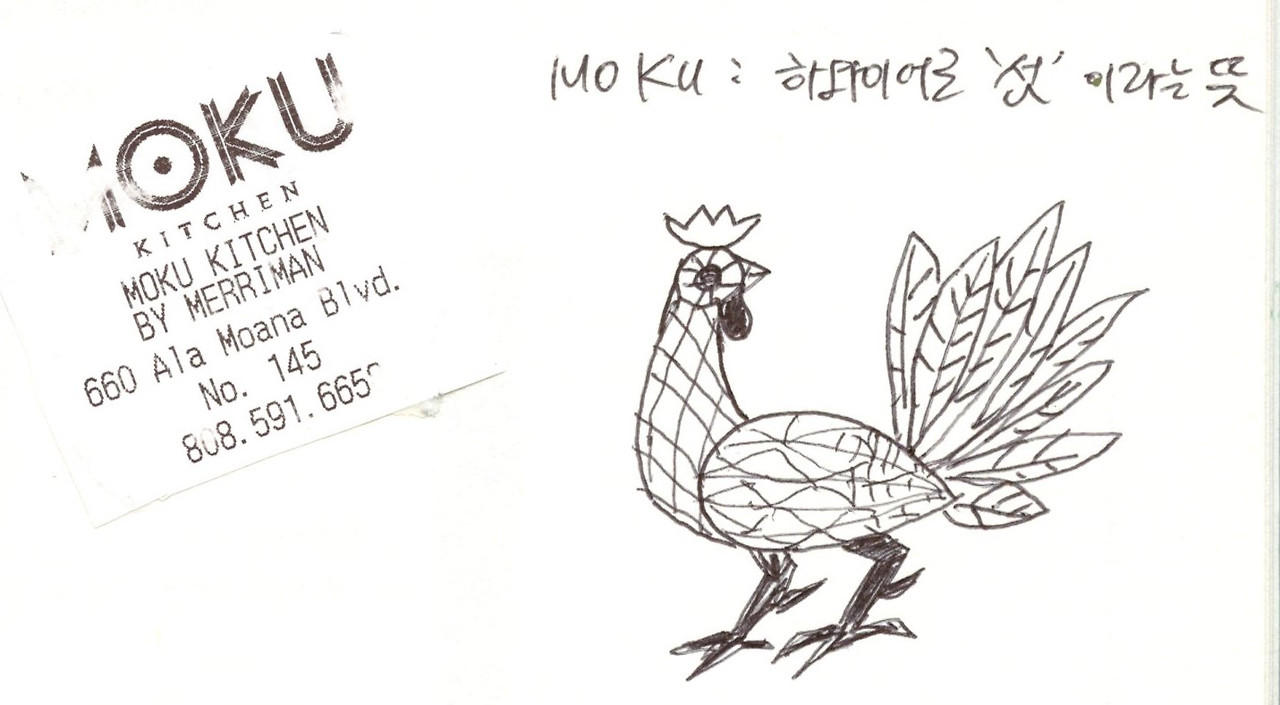 MOKU
KITCHEN
MOKU KITCHEN
BY MERRIMAN
660 Ala Moana Blvd.
No. 145
MOKU : 하와이어로 '섬' 이라는 뜻